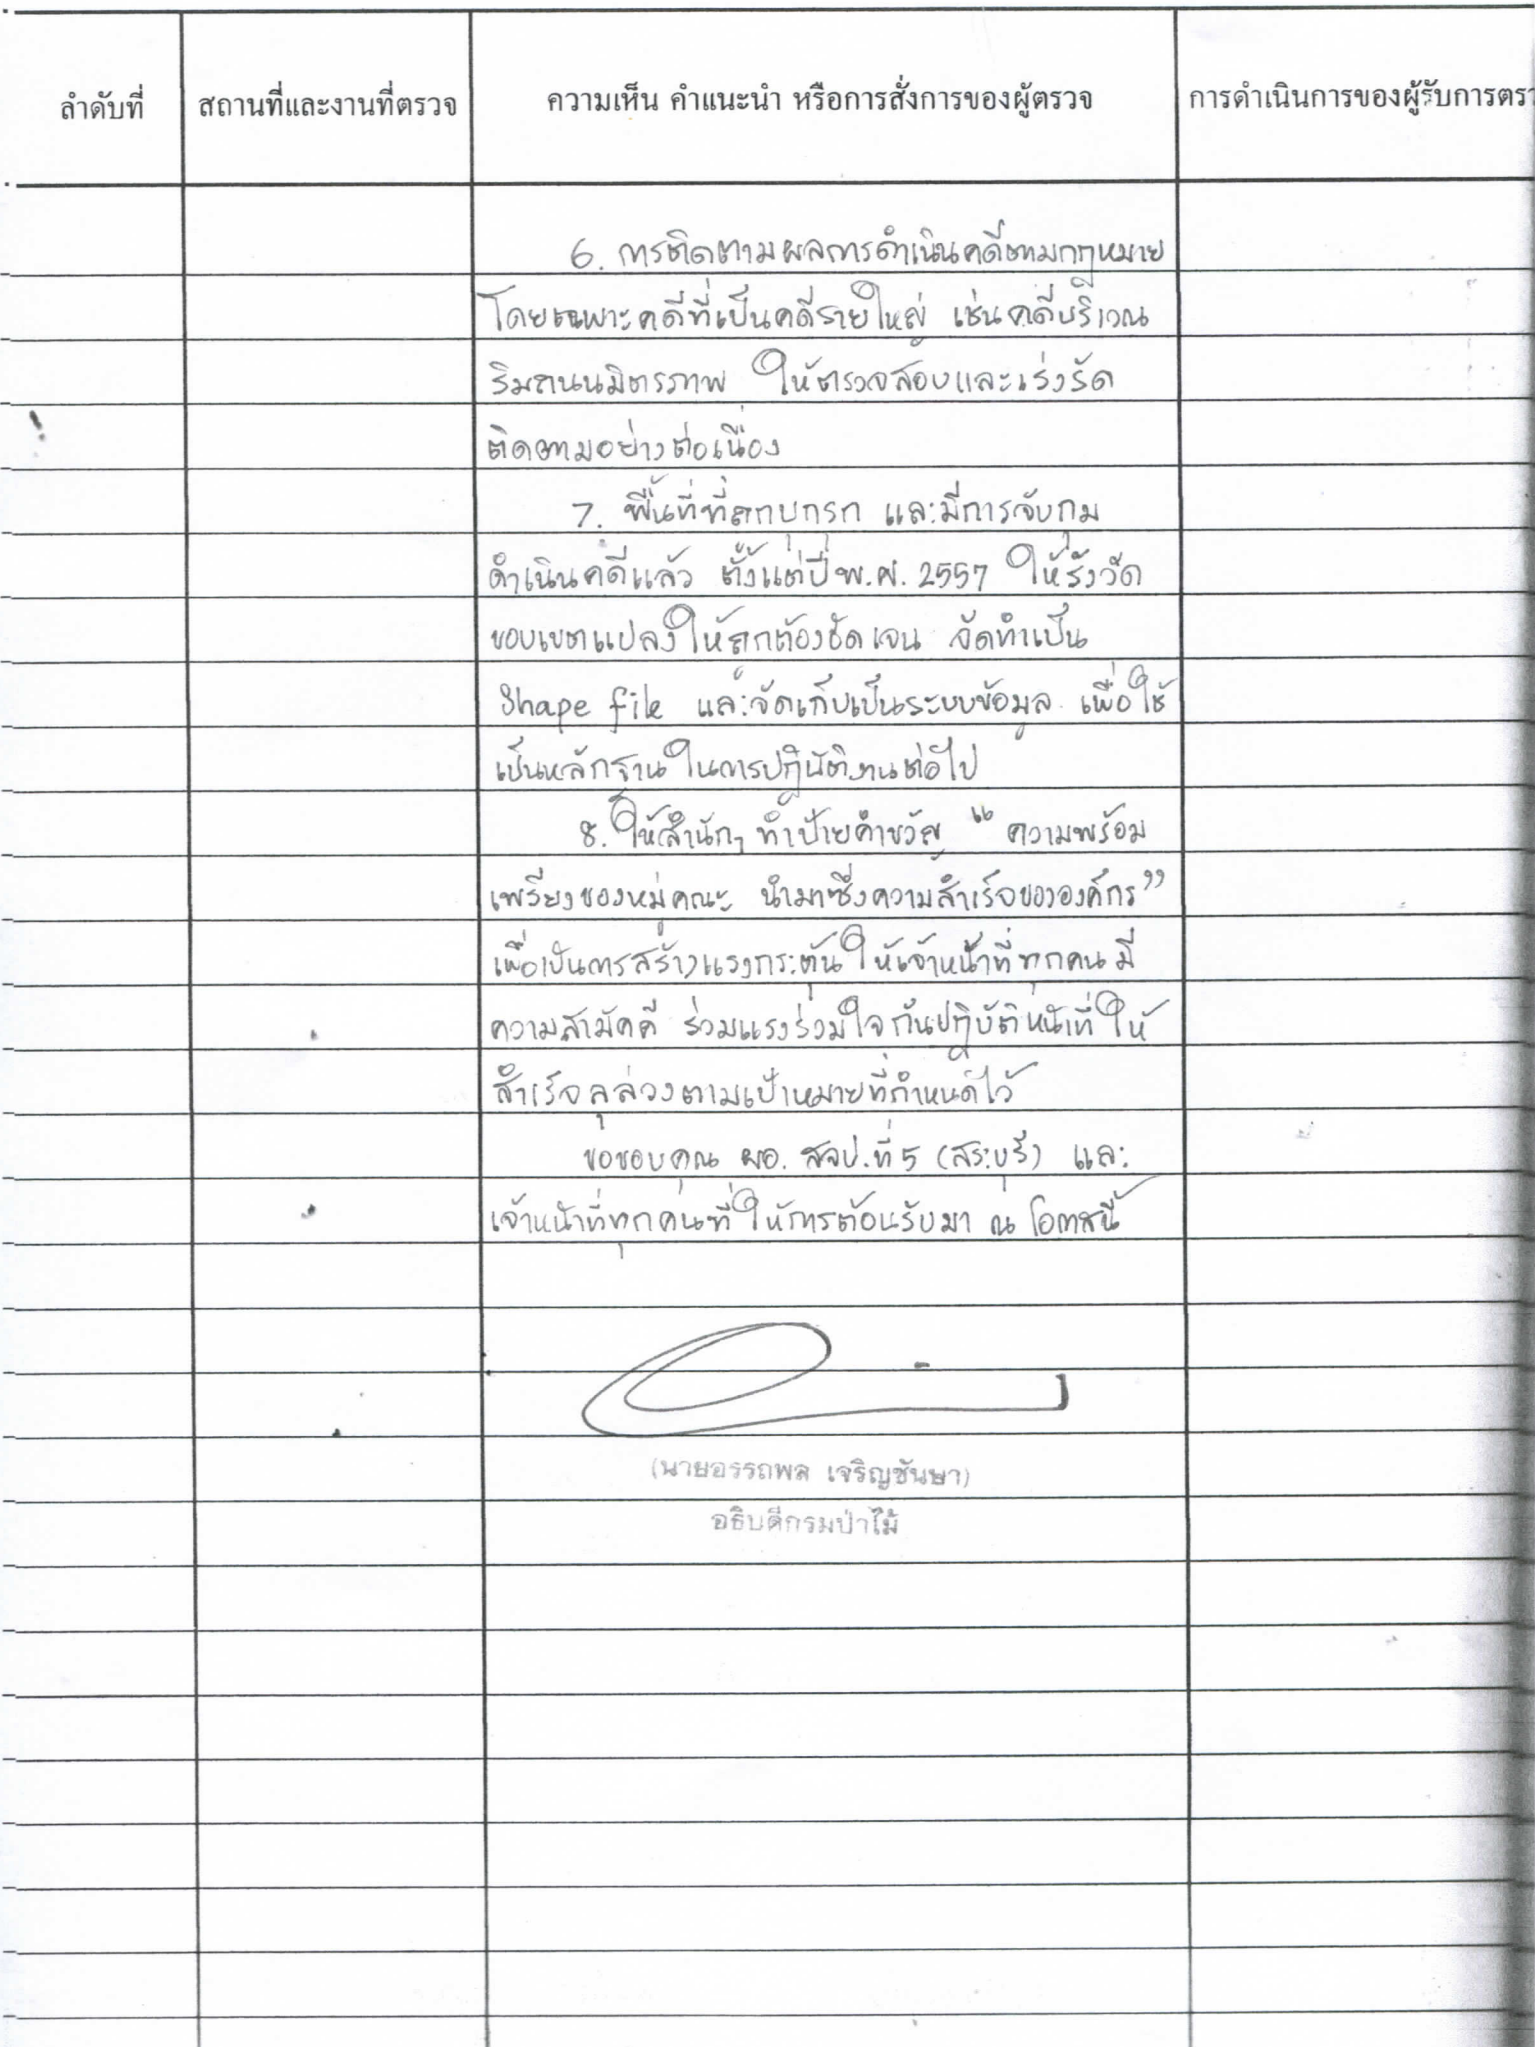 ลำดับที่ สถานที่และงานที่ตรวจ ความเห็น คำแนะนำ หรือการสั่งการของผู้ตรวจ การดำเนินการของผู้รับการตรว
6. การติดตามผลการดำเนินคดีตามกฎหมาย
โดยเฉพาะคดีที่เป็นคดีรายใหญ่ เช่นคดีบริเวณ
ริมถนนมิตรภาพ ให้ตรวจสอบและเร่งรัด
ติดตามอย่างต่อเนื่อง
7. พื้นที่ที่ถูกบุกรุก และมีการจับกุม
ดำเนินคดีแล้ว ตั้งแต่ปี พ.ศ. 2557 ให้รังวัด
ขอบเขตแปลงให้ถูกต้องชัดเจน จัดทำเป็น
Shape file และจัดเก็บเป็นระบบข้อมูล เพื่อใช้
เป็นหลักฐานในการปฏิบัติงานต่อไป
8. ให้สำนักฯ ทำป้ายคำขวัญ “ความพร้อม
เพรียงของหมู่คณะ นำมาซึ่งความสำเร็จขององค์กร”
เพื่อเป็นการสร้างแรงกระตุ้นให้เจ้าหน้าที่ทุกคนมี
ความสามัคคี ร่วมแรงร่วมใจกันปฏิบัติหน้าที่ให้
สำเร็จลุล่วงตามเป้าหมายที่กำหนดไว้
ขอขอบคุณ ผอ. สจป.ที่ 5 (สระบุรี) และ
เจ้าหน้าที่ทุกคนที่ให้การต้อนรับมา ณ โอกาสนี้
(นายอรรถพล เจริญชันษา)
อธิบดีกรมป่าไม้